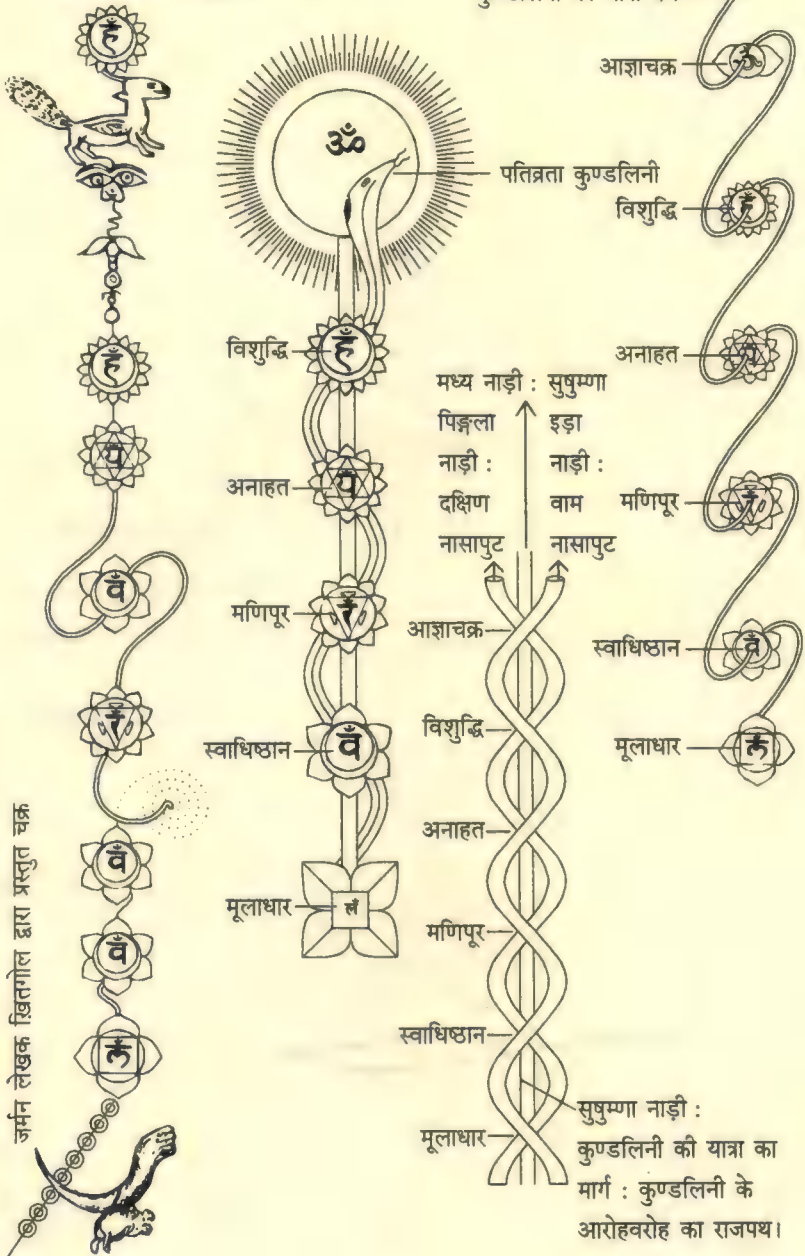 जर्मन लेखक ख़ितगोल द्वारा प्रस्तुत चक्र
हँ
हँ
यँ
वँ
रँ
वँ
वँ
लँ
ॐ
पतिव्रता कुण्डलिनी
विशुद्धि
हँ
अनाहत
यँ
मणिपूर
रँ
स्वाधिष्ठान
वँ
मूलाधार
लँ
मध्य नाड़ी : सुषुम्णा
पिङ्गला इड़ा
नाड़ी : नाड़ी :
दक्षिण वाम
नासापुट नासापुट
आज्ञाचक्र
विशुद्धि
अनाहत
मणिपूर
स्वाधिष्ठान
मूलाधार
सुषुम्णा नाड़ी :
कुण्डलिनी की यात्रा का
मार्ग : कुण्डलिनी के
आरोहवरोह का राजपथ।
आज्ञाचक्र
ॐ
विशुद्धि
हँ
अनाहत
यँ
मणिपूर
रँ
स्वाधिष्ठान
वँ
मूलाधार
लँ